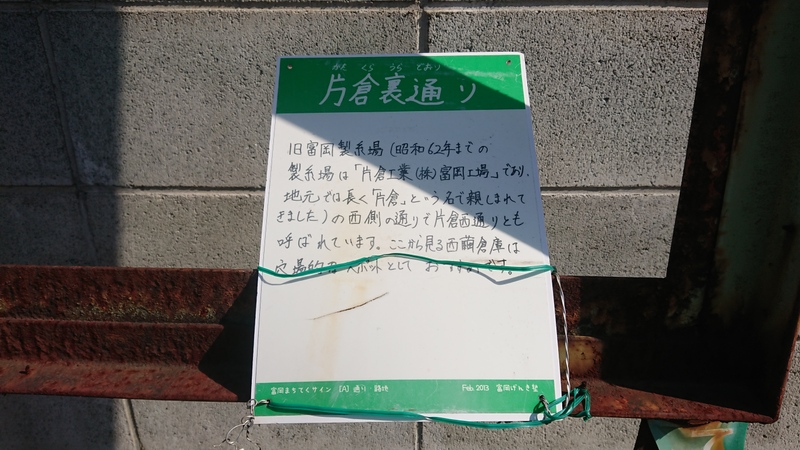 かた くら うら どおり
片倉裏通り
旧富岡製糸場(昭和62年までの
製糸場は「片倉工業(株)富岡工場」であり、
地元では長く「片倉」という名で親しまれて
きました)の西側の通りで片倉西通りとも
呼ばれています。ここから見る西繭倉庫は
穴場的なスポットとして お
富岡まちてくサイン [A] 通り 路地
Feb 2013 富岡げんき塾